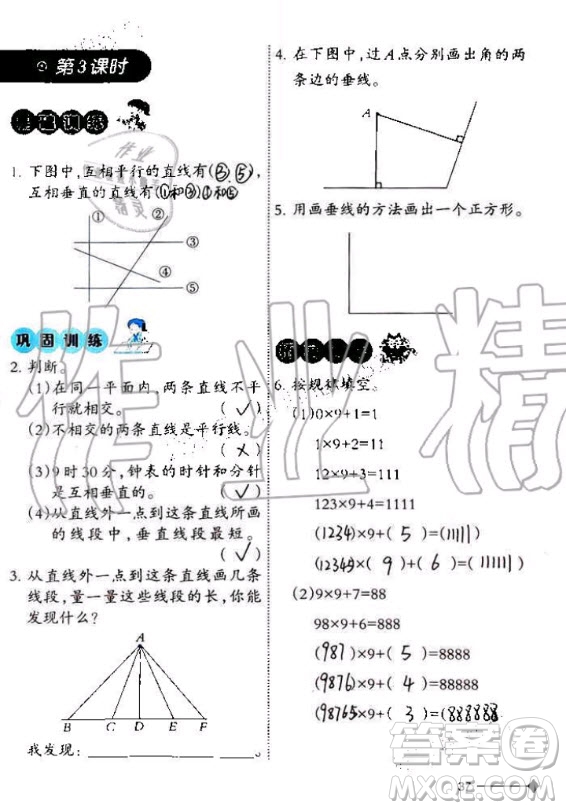 第3课时
基础训练
1. 下图中,互相平行的直线有(③ ⑤),
互相垂直的直线有(①和③)(①和⑤)
①
②
③
④
⑤
巩固训练
2. 判断。
(1)在同一平面内,两条直线不平
行就相交。 (√)
(2)不相交的两条直线是平行线。
(×)
(3)9时30分,钟表的时针和分针
是互相垂直的。 (√)
(4)从直线外一点到这条直线所画
的线段中,垂直线段最短。
(√)
3. 从直线外一点到这条直线画几条
线段,量一量这些线段的长,你能
发现什么?
A
B C D E F
我发现:
4. 在下图中,过A点分别画出角的两
条边的垂线。
A
5. 用画垂线的方法画出一个正方形。
6. 按规律填空。
(1)0×9+1=1
1×9+2=11
12×9+3=111
123×9+4=1111
(1234)×9+( 5 )=(11111)
(12345)×( 9 )+( 6 )=(111111)
(2)9×9+7=88
98×9+6=888
(987)×9+( 5 )=8888
(9876)×9+( 4 )=88888
(98765×9+( 3 )=(888888
37
作业精灵
作业精
答案圈
MXQE.COM